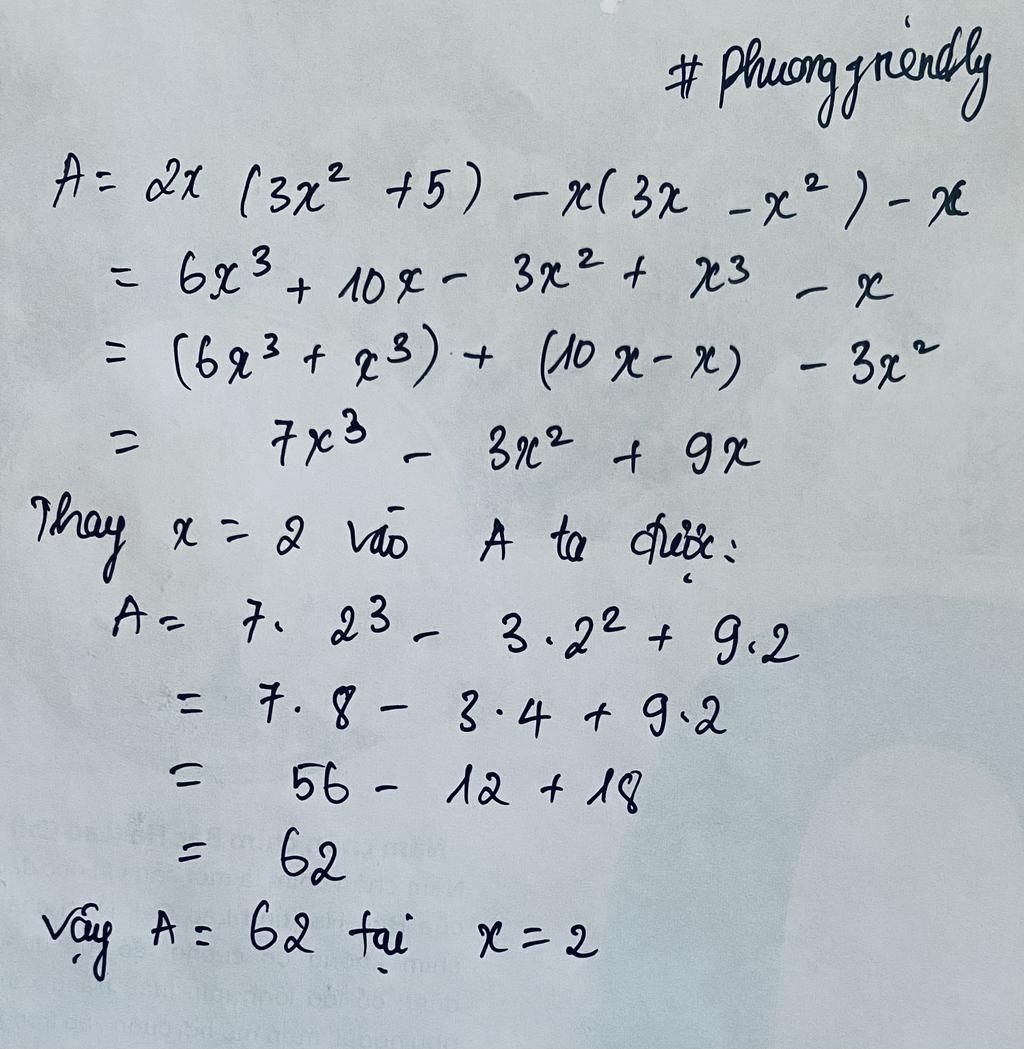 # Phuongfriendly
A = 2x (3x² + 5) - x(3x - x²) - x
= 6x³ + 10x - 3x² + x³ - x
= (6x³ + x³) + (10x - x) - 3x²
= 7x³ - 3x² + 9x
Thay x = 2 vào A ta được:
A = 7. 2³ - 3.2² + 9.2
= 7.8 - 3.4 + 9.2
= 56 - 12 + 18
= 62
Vậy A = 62 tại x = 2